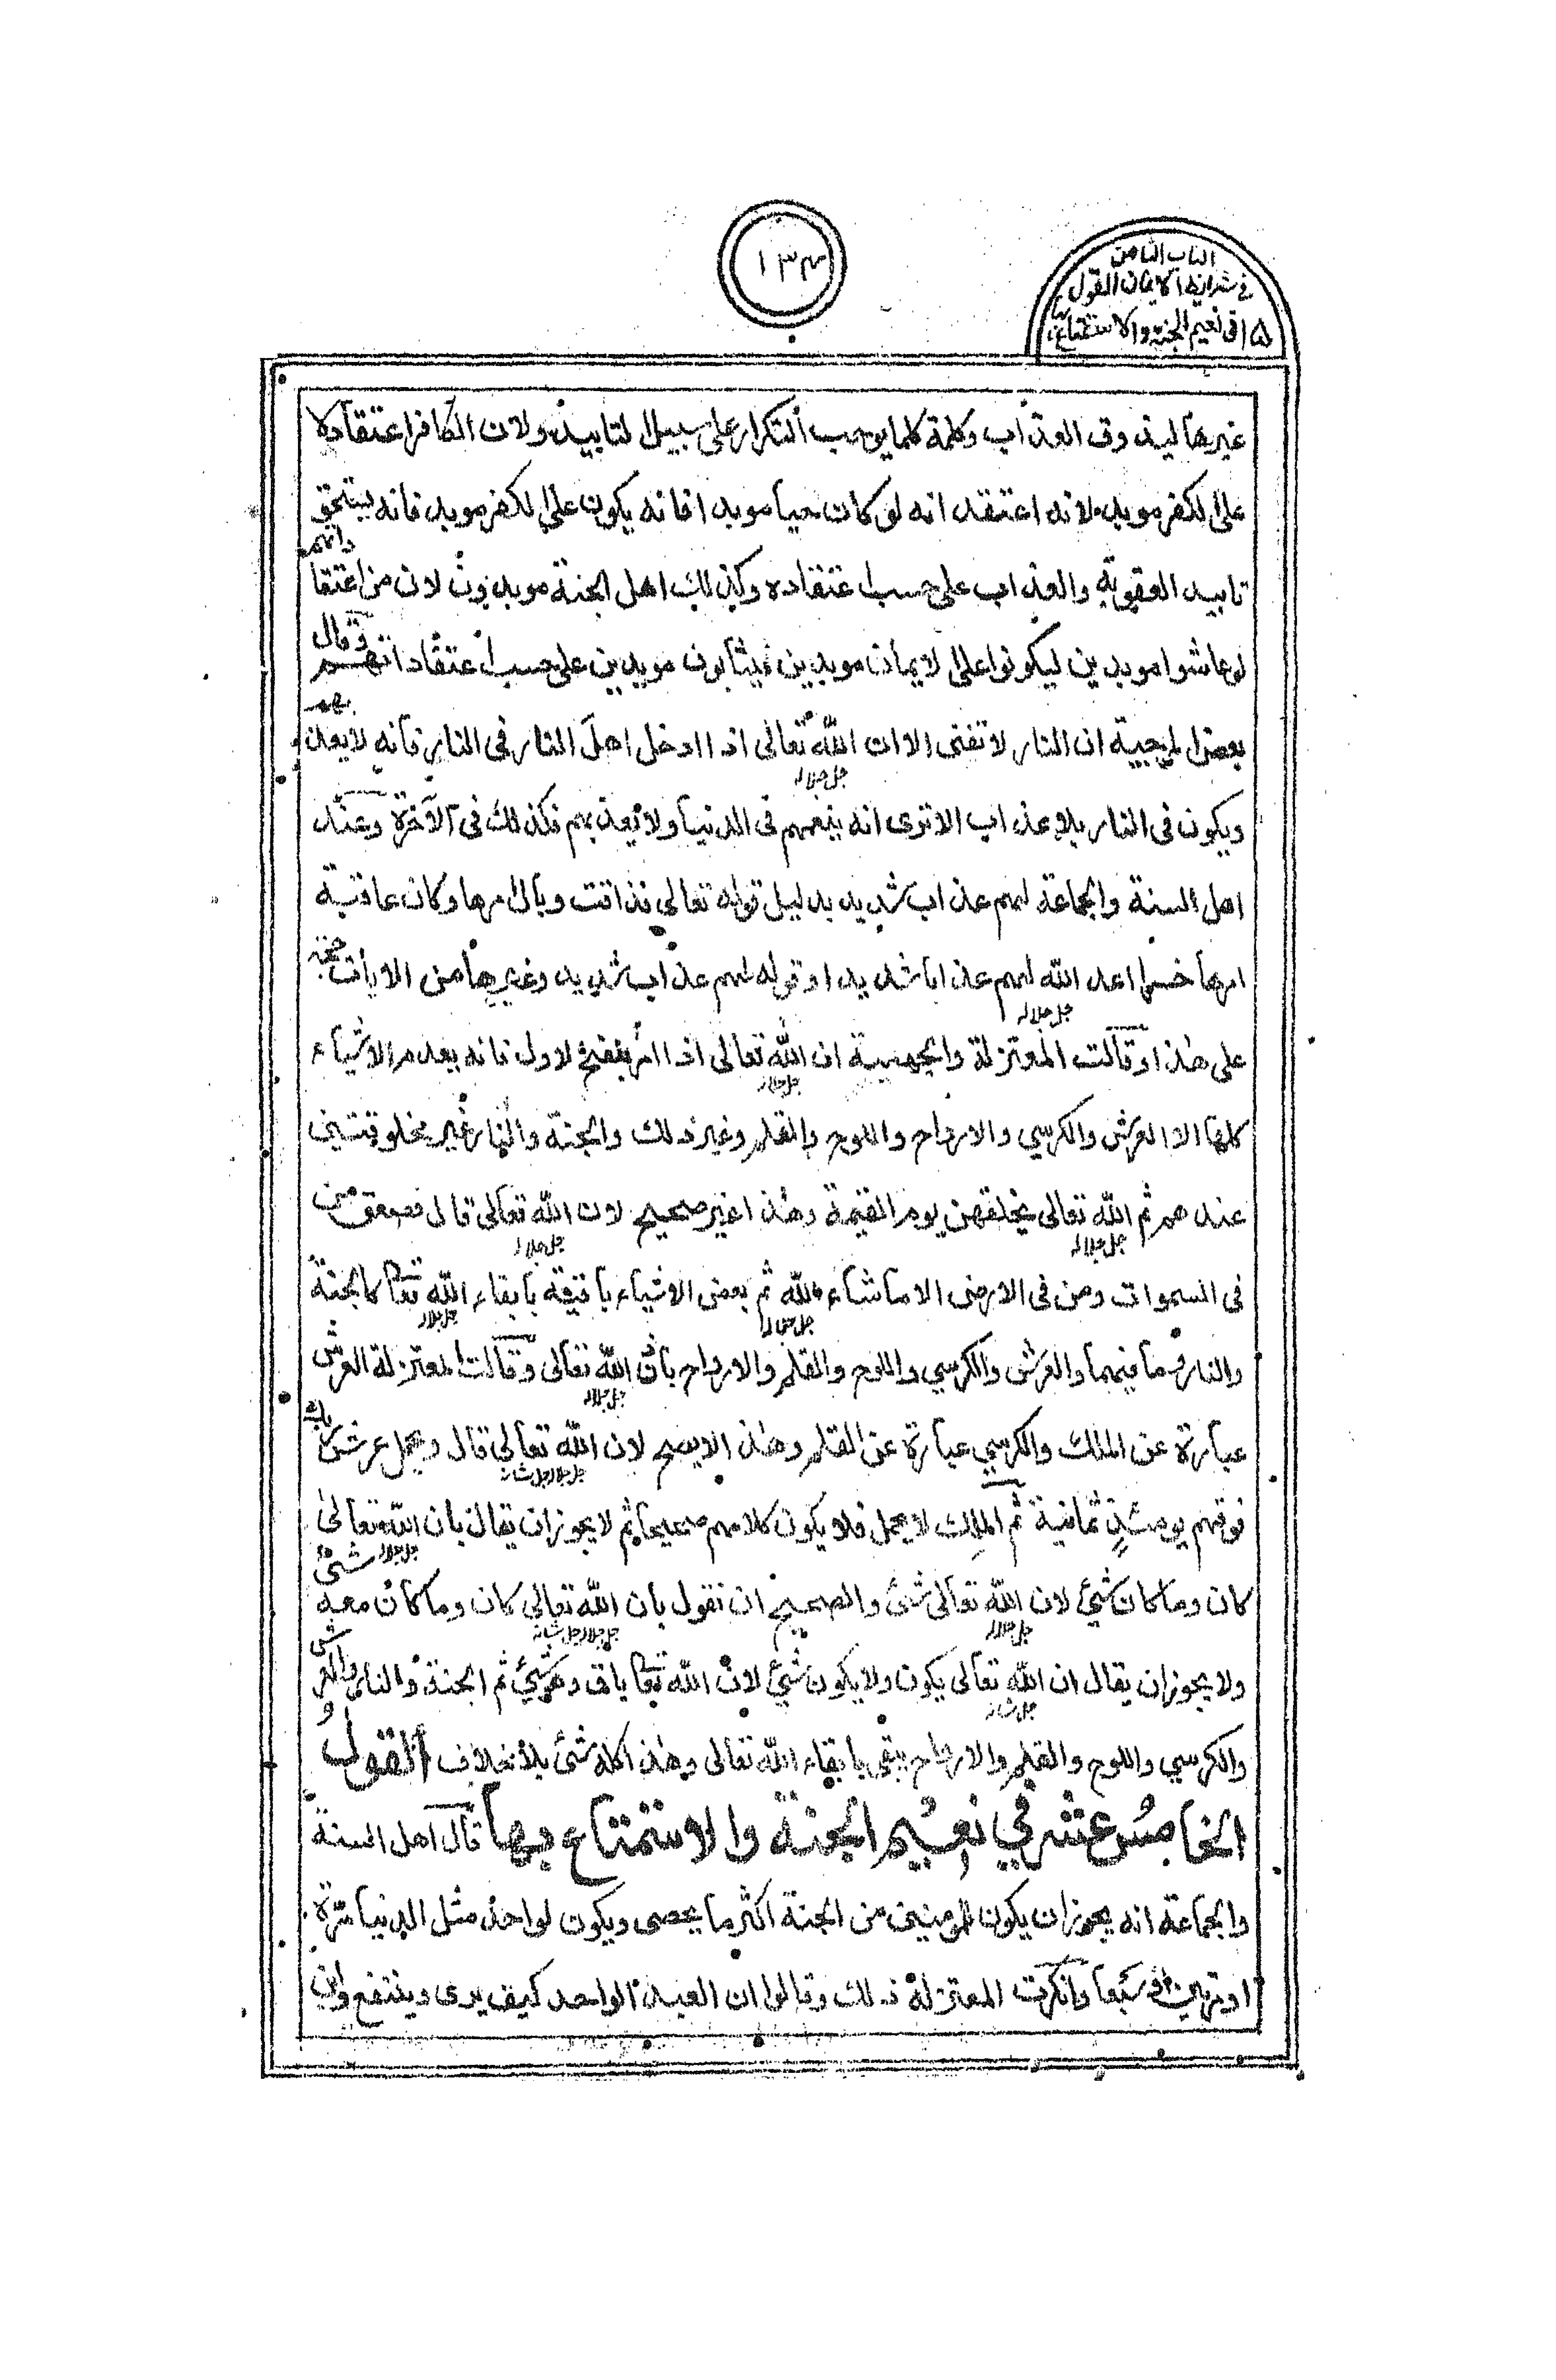 ١٣٤
الباب الثامن
في شرائط الايمان القول
١٥ في نعيم الجنة والاستمتاع بها
غيرها ليذوقوا العذاب وكلمة كلما يوجب التكرار على سبيل التابيد ولان الكافر اعتقاده
على الكفر موبد لانه اعتقد انه لو كان حيا موبدا فانه يكون على الكفر موبد فانه يستحق
تابيد العقوبة والعذاب على حسب اعتقاده وكذلك اهل الجنة موبدون لان من اعتقادهم انهم
لو عاشوا موبدين ليكونوا على الايمان موبدين فيثابون موبدين على حسب اعتقاداتهم وقال
بعض المرجيية ان النار لا تفنى الا ان الله تعالى جل جلاله اذا ادخل اهل النار في النار فانه لا يعذبهم
ويكون في النار بلا عذاب الا ترى انه ينعمهم في الدنيا ولا يعذبهم فكذلك في الآخرة وعند
اهل السنة والجماعة لهم عذاب شديد بدليل قوله تعالى فذاقت وبال امرها وكان عاقبة
امرها خسرا اعد الله جل جلاله لهم عذابا شديدا وقوله لهم عذاب شديد وغيرها من الايات حجة
على هذا وقالت المعتزلة والجهمية ان الله تعالى جل جلاله اذا امر بنفخ الاول فانه يعدم الاشياء
كلها الا العرش والكرسي والارواح واللوح والقلم وغير ذلك والجنة والنار غير مخلوقتين
عندهم ثم الله تعالى جل جلاله يخلقهن يوم القيمة وهذا غير صحيح لان الله تعالى جل جلاله قال فصعق من
في السموات ومن في الارض الا ما شاء الله جل جلاله ثم بعض الاشياء باقية بابقاء الله تعا جل جلاله كالجنة
والنار وما فيهما والعرش والكرسي واللوح والقلم والارواح بان الله تعالى جل جلاله وقالت المعتزلة العرش
عبارة عن الملك والكرسي عبارة عن القلم وهذا لا يصح لان الله تعالى جل جلاله جل شانه قال ويحمل عرش ربك
فوقهم يومئذٍ ثمانية ثم المَلِك لا يحمل فلا يكون كلامهم صحيحا ثم لا يجوز ان يقال بان الله تعالى جل جلاله
كان وما كان شيئ لان الله تعالى جل جلاله شئ والصحيح ان نقول بان الله تعالى جل جلاله جل شانه كان وما كان معه شئ
ولا يجوز ان يقال ان الله تعالى جل شانه يكون ولا يكون شئ لان الله تعا باق وهو شيئ ثم الجنة والنار والعرش
والكرسي واللوح والقلم والارواح يبقى بابقاء الله تعالى وهذا كله شئ بلا خلاف القولُ
الخامسُ عشر في نعيم الجنة والاستمتاع بها قال اهل السنة
والجماعة انه يجوز ان يكون للمومنين من الجنة اكثر ما يحصى ويكون لواحد مثل الدنيا مرة
او مرتين او سبعا وانكرت المعتزلة ذلك وقالوا ان العبد الواحد كيف يرى وينتفع واين